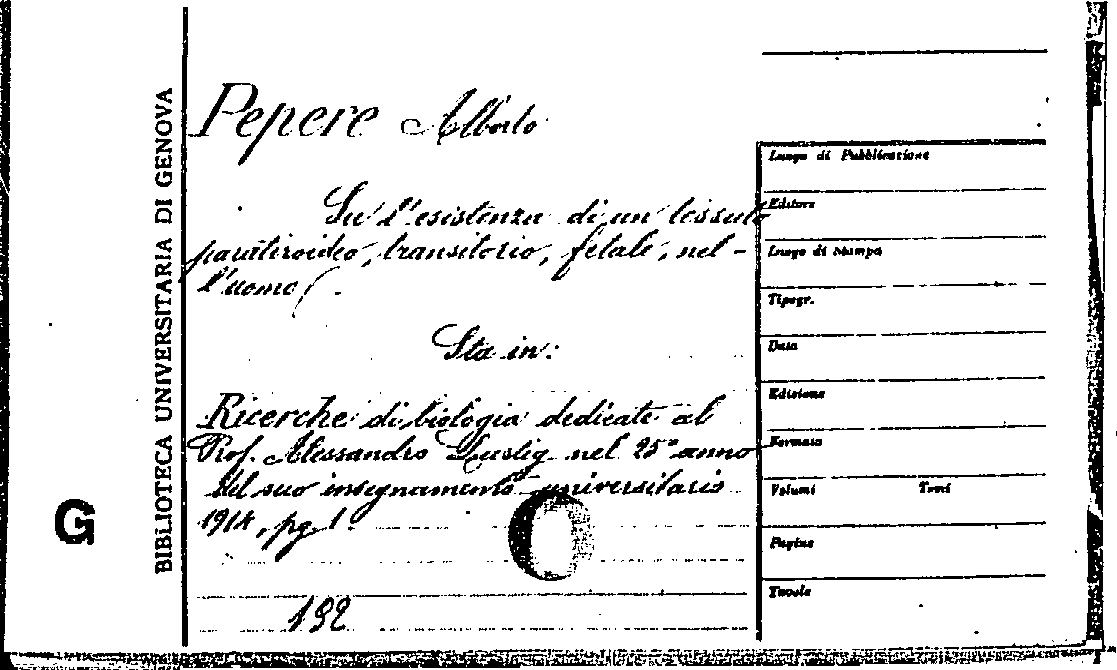 BIBLIOTECA UNIVERSITARIA DI GENOVA
G
Pepere Alberto
Su l'esistenza di un tessuto
paratiroideo, transitorio, fetale, nel-
l'uomo.
Sta in:
Ricerche di biologia dedicate al
Prof. Alessandro Lustig nel 25° anno
del suo insegnamento universitario
1914, pg. 1.
192
Luogo di Pubblicazione
Editore
Luogo di Stampa
Tipogr.
Data
Edizione
Formato
Volumi Tomi
Pagine
Tavole